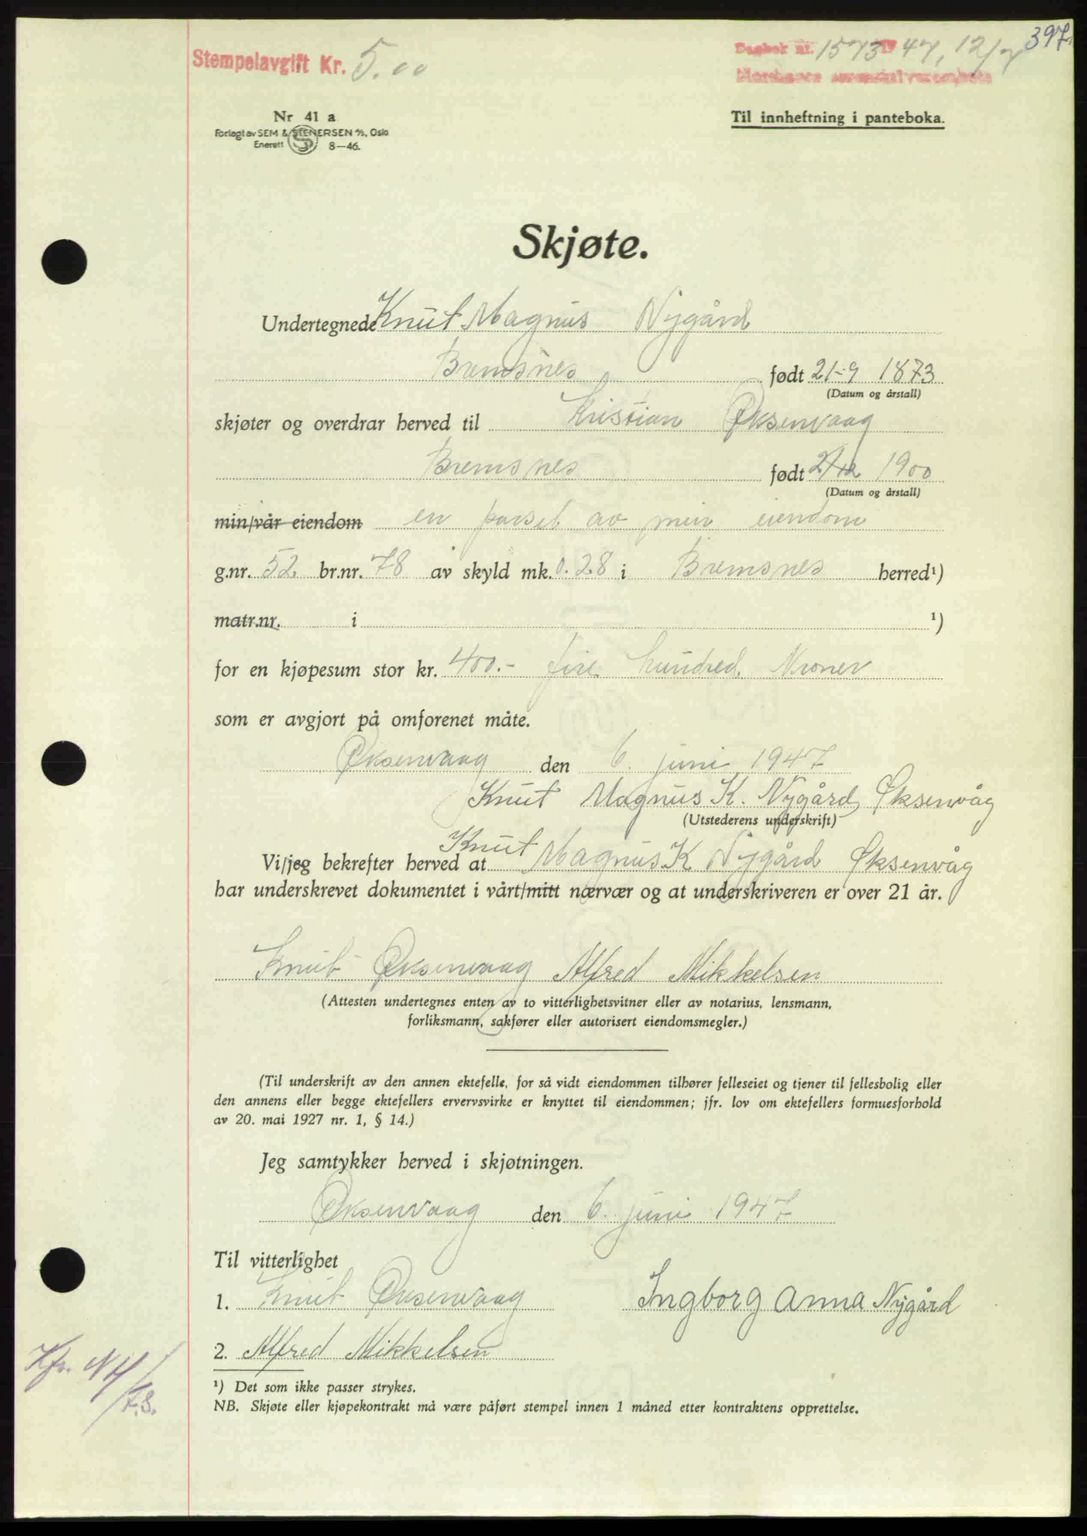 397.
Stempelavgift Kr. 5.00
Dagbok nr. 1573 1947, 12/7
Nordmøre sorenskriverembete
Nr 41 a
Forlagt av SEM & STENERSEN A/S, Oslo
Enerett 8—46.
Til innheftning i panteboka.
Skjøte.
Undertegnede Knut Magnus Nygård
Bremsnes født 21-9 1873
(Datum og årstall)
skjøter og overdrar herved til Kristian Øksenvaag
Bremsnes født 2/12 1900
(Datum og årstall)
min/vår eiendom en parsel av min eiendom
g.nr. 52 br.nr. 78 av skyld mk. 0.28 i Bremsnes herred¹)
matr.nr. i ¹)
for en kjøpesum stor kr. 400.- fire hundred. Kroner
som er avgjort på omforenet måte.
Øksenvaag den 6. juni 1947
Knut Magnus K. Nygård, Øksenvåg
(Utstederens underskrift)
Vi/jeg bekrefter herved at Knut Magnus K Nygård Øksenvåg
har underskrevet dokumentet i vårt/mitt nærvær og at underskriveren er over 21 år.
Knut Øksenvaag Alfred Mikkelsen
(Attesten undertegnes enten av to vitterlighetsvitner eller av notarius, lensmann,
forliksmann, sakfører eller autorisert eiendomsmegler.)
(Til underskrift av den annen ektefelle, for så vidt eiendommen tilhører felleseiet og tjener til fellesbolig eller
den annens eller begge ektefellers ervervsvirke er knyttet til eiendommen; jfr. lov om ektefellers formuesforhold
av 20. mai 1927 nr. 1, § 14.)
Jeg samtykker herved i skjøtningen.
Øksenvaag den 6. juni 1947
Til vitterlighet
1. Knut Øksenvaag Ingborg Anna Nygård
2. Alfred Mikkelsen
¹) Det som ikke passer strykes.
NB. Skjøte eller kjøpekontrakt må være påført stempel innen 1 måned etter kontraktens opprettelse.